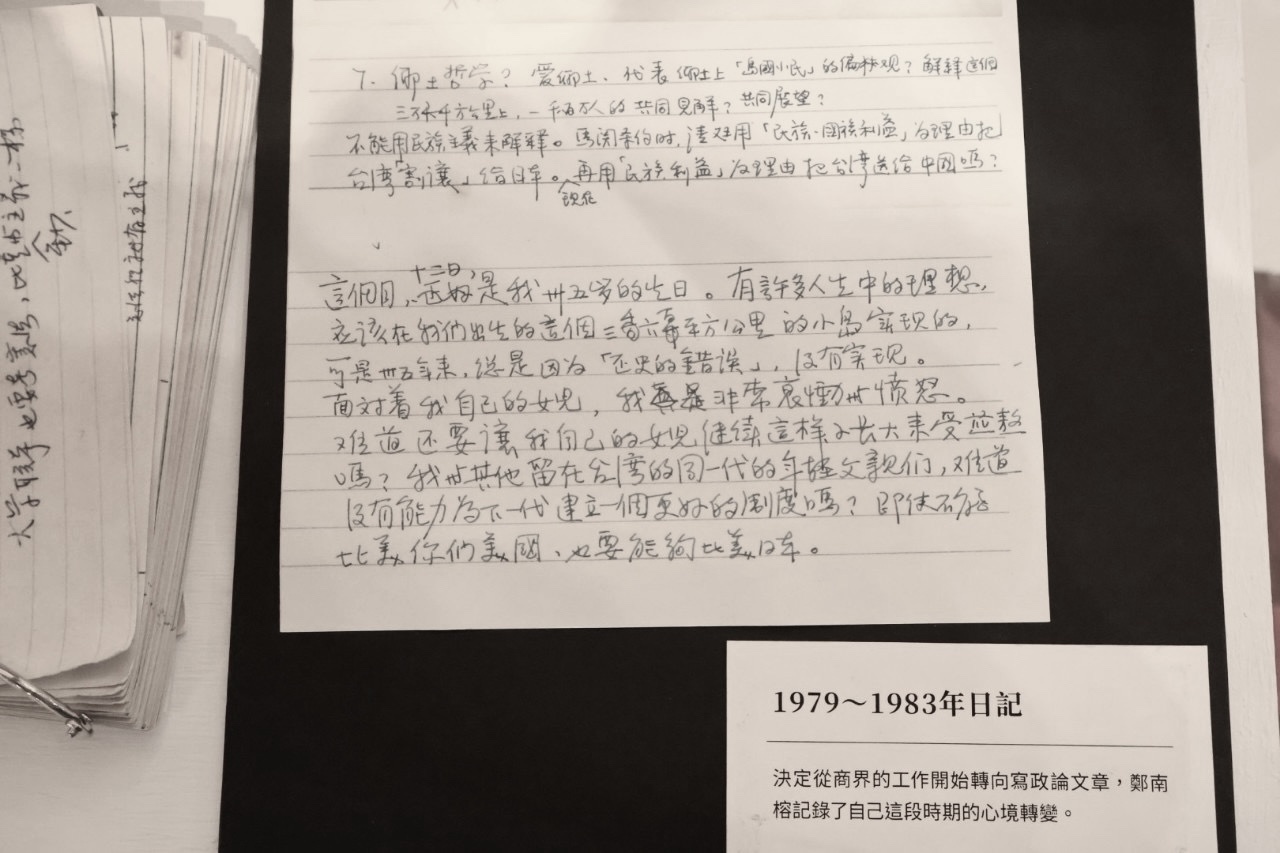 7. 鄉土哲學？愛鄉土、代表鄉土上「島國小民」的偏狹观？解釋這個
三万六千方公里上，一千八百万人的共同見解？共同展望？
不能用民族主義来解释。馬関条約時，清廷用「民族、國族利益」為理由把
台湾「割讓」給日本。現在再用「民族利益」為理由把台湾送給中國嗎？
這個月十二日，正好是我卅五岁的生日。有許多人生中的理想，
应該在我們出生的這個三萬六千平方公里的小島実現的，
可是卅五年来，總是因为「历史的錯誤」，没有実現。
面对着我自己的女児，我真是非常哀慟卅愤怒。
难道还要讓我自己的女児継續這樣子長大来受煎熬
嗎？我卅其他留在台湾的同一代的年軽父親们，难道
没有能力为下一代建立一個更好的制度嗎？即使不能
比美你们美國、也要能夠比美日本。
大学联考也要考
1979～1983年日記
決定從商界的工作開始轉向寫政論文章，鄭南
榕記錄了自己這段時期的心境轉變。